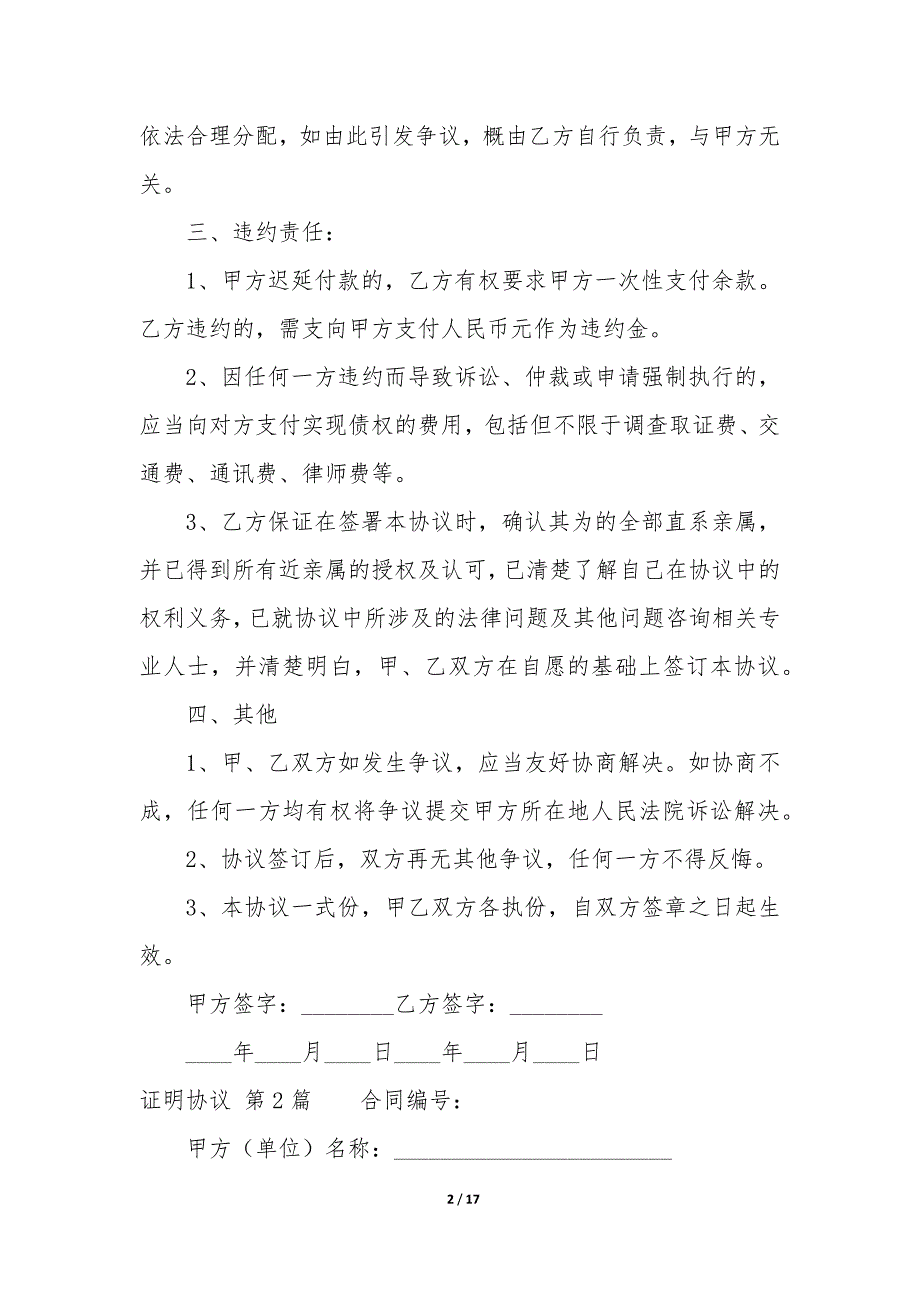 依法合理分配，如由此引发争议，概由乙方自行负责，与甲方无
关。
三、违约责任：
1、甲方迟延付款的，乙方有权要求甲方一次性支付余款。
乙方违约的，需支向甲方支付人民币元作为违约金。
2、因任何一方违约而导致诉讼、仲裁或申请强制执行的，
应当向对方支付实现债权的费用，包括但不限于调查取证费、交
通费、通讯费、律师费等。
3、乙方保证在签署本协议时，确认其为的全部直系亲属，
并已得到所有近亲属的授权及认可，已清楚了解自己在协议中的
权利义务，已就协议中所涉及的法律问题及其他问题咨询相关专
业人士，并清楚明白，甲、乙双方在自愿的基础上签订本协议。
四、其他
1、甲、乙双方如发生争议，应当友好协商解决。如协商不
成，任何一方均有权将争议提交甲方所在地人民法院诉讼解决。
2、协议签订后，双方再无其他争议，任何一方不得反悔。
3、本协议一式份，甲乙双方各执份，自双方签章之日起生
效。
甲方签字：________乙方签字：________
____年____月____日____年____月____日
证明协议 第2篇 合同编号：
甲方（单位）名称：________________________
2 / 17